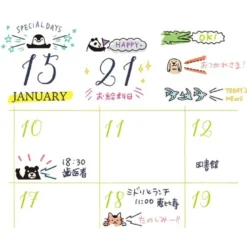 SPECIAL DAYS
15
JANUARY
HAPPY
21
お給料日
OK!
おつかれさま!
TODAY'S NEWS!
10
18:30
歯医者
11
12
図書館
17
18
ミドリとランチ
11:00 恵比寿
たのしみー!!
19